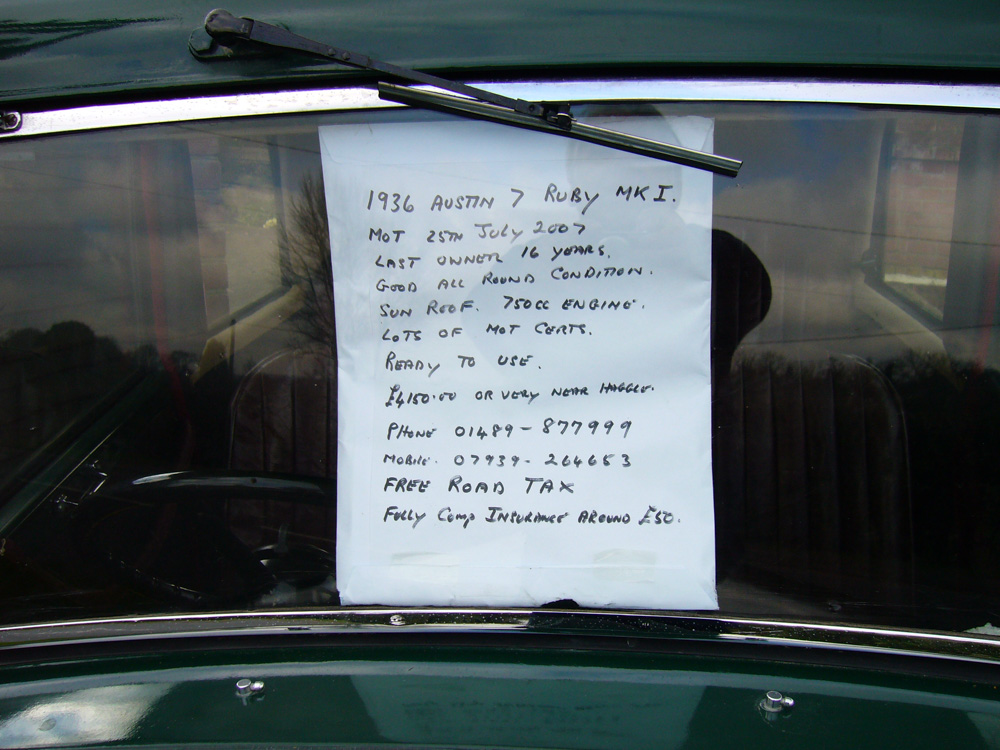 1936 AUSTIN 7 RUBY MK I.
MOT 25TH JULY 2007
LAST OWNER 16 YEARS.
GOOD ALL ROUND CONDITION.
SUN ROOF. 750CC ENGINE.
LOTS OF MOT CERTS.
READY TO USE.
£4150.00 OR VERY NEAR HAGGLE.
PHONE 01489-877999
MOBILE. 07939-264653
FREE ROAD TAX
FULLY COMP INSURANCE AROUND £50.